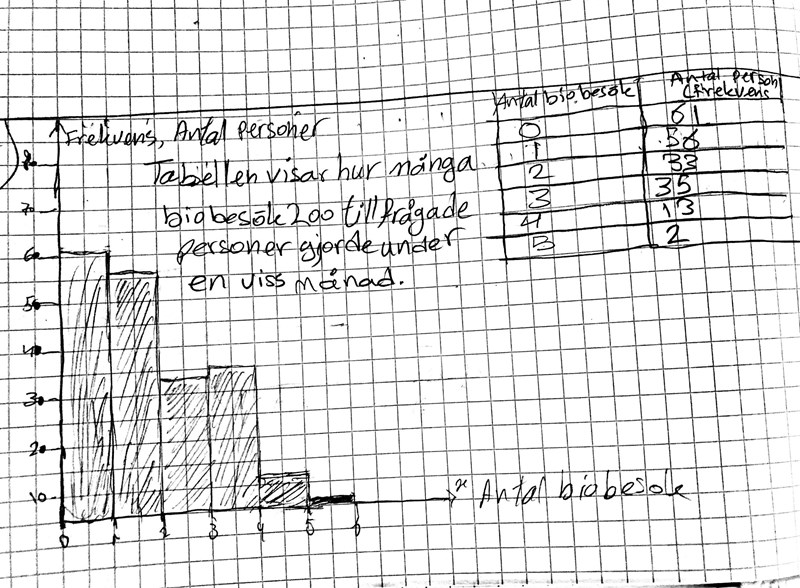 Antal biobesök
Antal person
(frekvens
0
61
1
56
2
33
3
35
4
13
5
2
Frekvens, Antal personer
Tabellen visar hur många
biobesök 200 tillfrågade
personer gjorde under
en viss månad.
80
70
60
50
40
30
20
10
0 1 2 3 4 5 6
x Antal biobesök